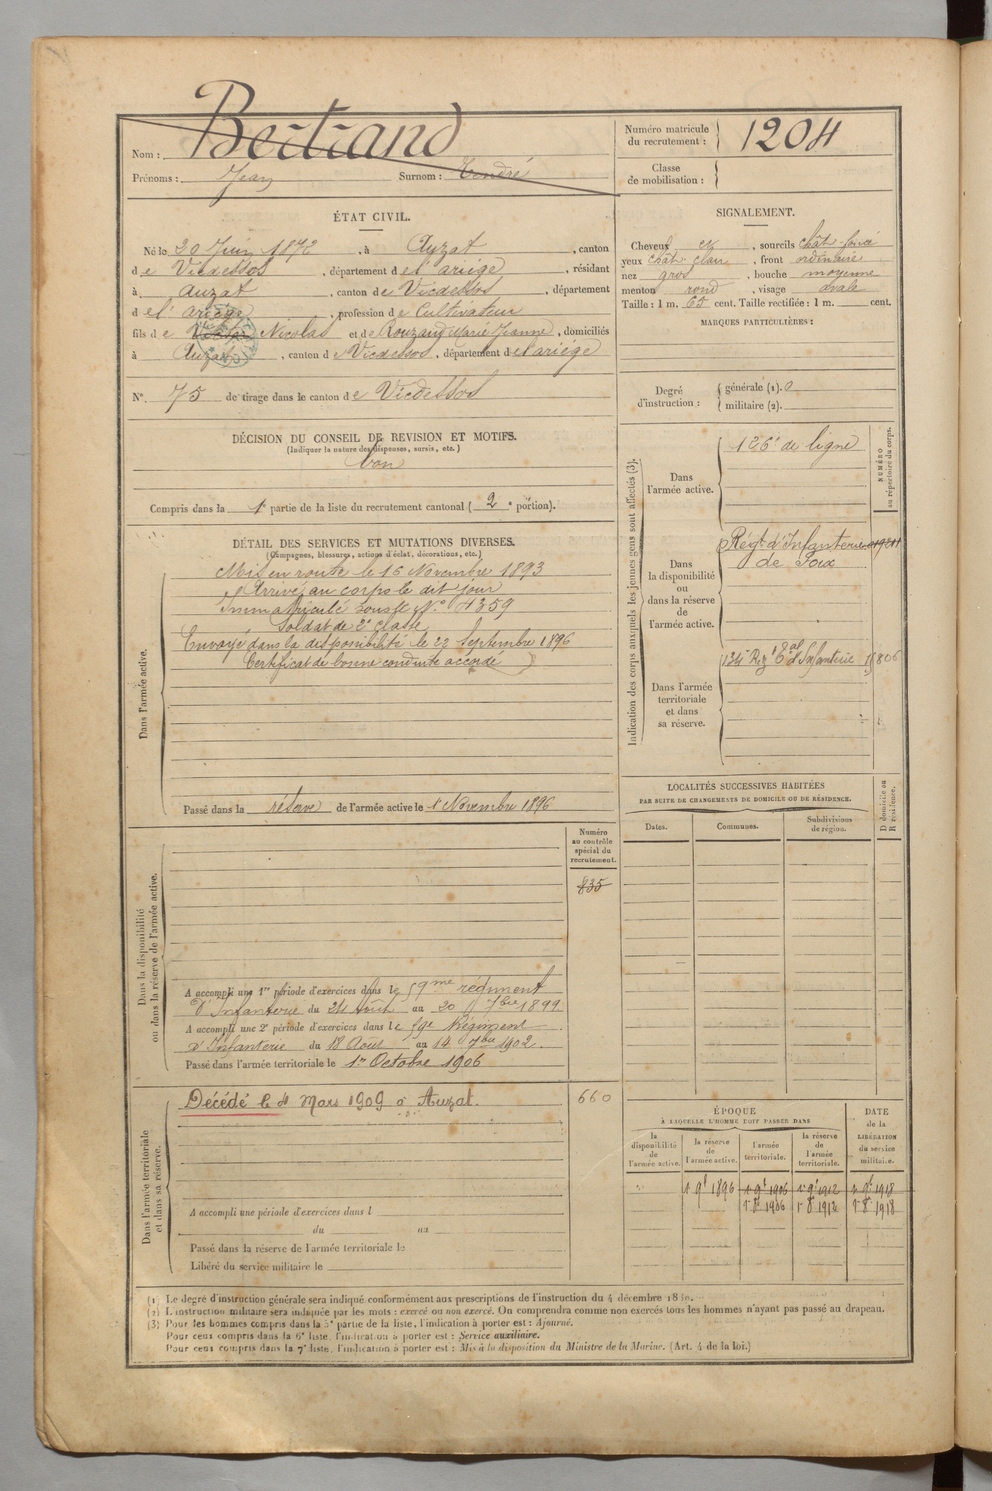 Nom : Bertrand
Prénoms : Jean Surnom : André
Numéro matricule du recrutement : 1204
Classe de mobilisation :
ÉTAT CIVIL.
Né le 20 Juin 1872, à Auzat, canton
de Vicdessos, département de l'ariège, résidant
à Auzat, canton de Vicdessos, département
de l'ariège, profession de Cultivateur
fils de Nicolas et de Rouzaud Marie Jeanne, domiciliés
à Auzat, canton de Vicdessos, département de l'ariège
N° 75 de tirage dans le canton de Vicdessos
SIGNALEMENT.
Cheveux et, sourcils chât. foncé
yeux chât. clair, front ordinaire
nez gros, bouche moyenne
menton rond, visage ovale
Taille : 1 m. 65 cent. Taille rectifiée : 1 m. cent.
MARQUES PARTICULIÈRES :
Degré d'instruction : générale (1). 0
militaire (2).
DÉCISION DU CONSEIL DE REVISION ET MOTIFS.
(Indiquer la nature des dispenses, sursis, etc.)
bon
Compris dans la 1e partie de la liste du recrutement cantonal (2e portion).
DÉTAIL DES SERVICES ET MUTATIONS DIVERSES.
(Campagnes, blessures, actions d'éclat, décorations, etc.)
Dans l'armée active.
Mis en route le 15 Novembre 1893
Arrivé au corps le dit jour
Immatriculé sous le N° 4359
Soldat de 2e classe
Envoyé dans la disponibilité le 22 Septembre 1896
Certificat de bonne conduite accordé
Passé dans la réserve de l'armée active le 1 Novembre 1896
Indication des corps auxquels les jeunes gens sont affectés (3).
NUMÉRO au répertoire du corps.
Dans l'armée active.
126e de ligne
Dans la disponibilité ou dans la réserve de l'armée active.
Régt d'Infanterie
de Foix
Dans l'armée territoriale et dans sa réserve.
134e Rég. tal d'Infanterie 15806
LOCALITÉS SUCCESSIVES HABITÉES
PAR SUITE DE CHANGEMENTS DE DOMICILE OU DE RÉSIDENCE.
Dates. Communes. Subdivisions de région. D domicile ou R résidence.
Numéro au contrôle spécial du recrutement.
835
Dans la disponibilité ou dans la réserve de l'armée active.
A accompli une 1re période d'exercices dans le 59me régiment
d'Infanterie du 24 Août au 20 7bre 1899
A accompli une 2e période d'exercices dans le 59e Régiment
d'Infanterie du 18 Août au 14 7bre 1902.
Passé dans l'armée territoriale le 1er Octobre 1906
Dans l'armée territoriale et dans sa réserve.
Décédé le 4 Mars 1909 à Auzat. 660
A accompli une période d'exercices dans l
du au
Passé dans la réserve de l'armée territoriale le
Libéré du service militaire le
ÉPOQUE
À LAQUELLE L'HOMME DOIT PASSER DANS
DATE de la LIBÉRATION du service militaire.
la disponibilité de l'armée active. la réserve de l'armée active. l'armée territoriale. la réserve de l'armée territoriale.
1 9bre 1896 1 9bre 1906 1 9bre 1912 1 9bre 1918
1 8bre 1906 1 8bre 1912 1 8bre 1918
(1) Le degré d'instruction générale sera indiqué conformément aux prescriptions de l'instruction du 4 décembre 1889.
(2) L'instruction militaire sera indiquée par les mots : exercé ou non exercé. On comprendra comme non exercés tous les hommes n'ayant pas passé au drapeau.
(3) Pour les hommes compris dans la 5e partie de la liste, l'indication à porter est : Ajourné.
Pour ceux compris dans la 6e liste, l'indication à porter est : Service auxiliaire.
Pour ceux compris dans la 7e liste, l'indication à porter est : Mis à la disposition du Ministre de la Marine. (Art. 4 de la loi.)